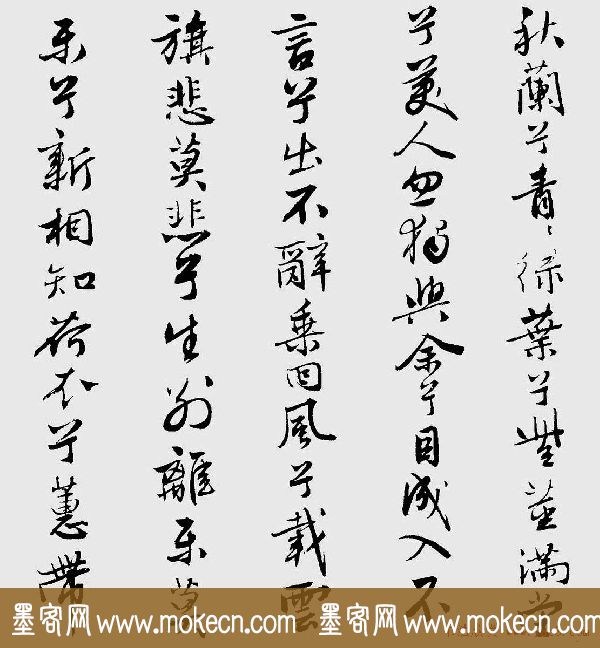 秋蘭兮青〻綠葉兮紫莖滿堂
兮美人忽獨與余兮目成入不
言兮出不辭乘回風兮載雲
旗悲莫悲兮生別離樂莫
樂兮新相知荷衣兮蕙帶
墨客网 www.mokecn.com 墨客网 www.mokecn.com